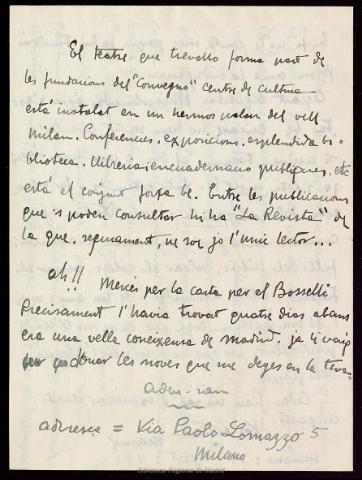 El teatre que trevallo forma part de
les fundacions del "Convegno" centre de cultura
està instalat en un hermos palau del vell
Milan. Conferencies, exposicions, esplendida bi-
blioteca. Llibreria i encuadernacio publiques, etc
està el conjunt forsa be. Entre les publicacions
que 's poden consultar hi ha "La Revista" de
la que, segurament, ne soc jo l'unic lector...
ah!! Merces per la carta per el Bosselli
Precisament l'havia trovat quatre dias abans
era una vella coneixensa de Madrid. ja li vaig
donar les noves que me deyes en la teva
adeu-siau
adressa = Via Paolo Lomazzo 5
Milano